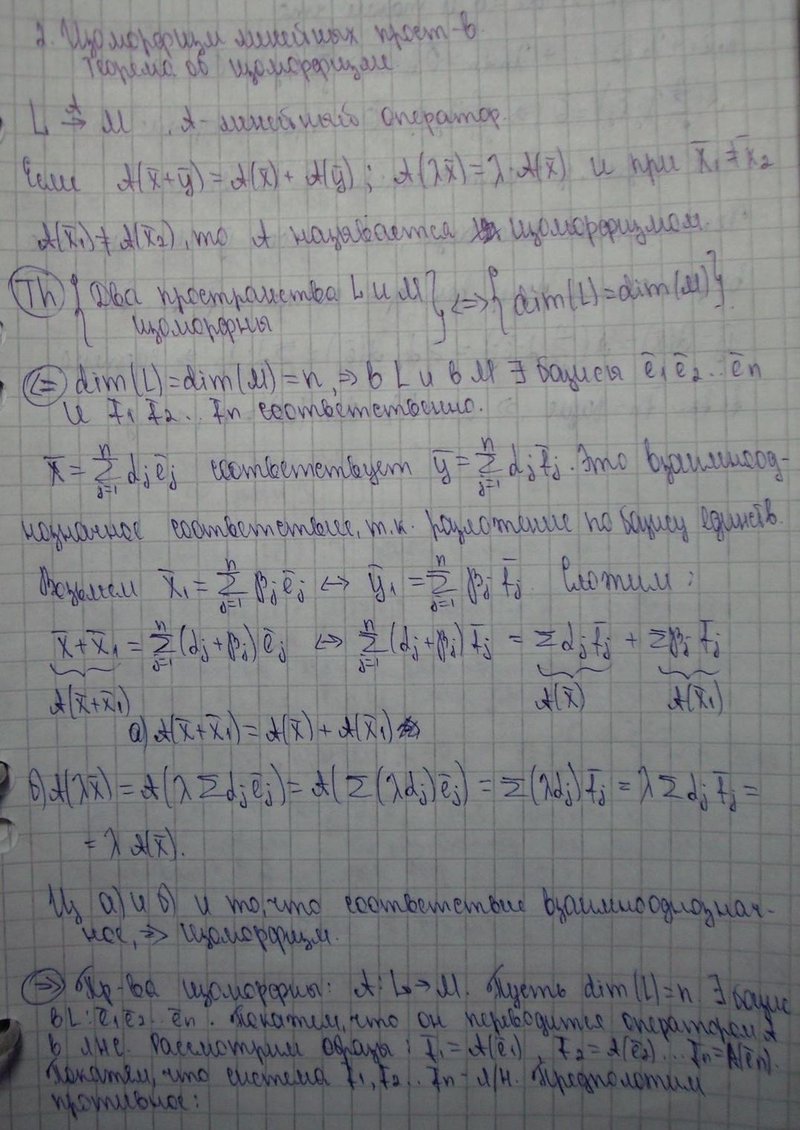 2. Изоморфизм линейных прост-в.
Теорема об изоморфизме
L →ᴬ M , A - линейный оператор.
Если A(x̄+ȳ) = A(x̄) + A(ȳ); A(λx̄) = λ·A(x̄) и при x̄₁ ≠ x̄₂
A(x̄₁) ≠ A(x̄₂), то A называется изоморфизмом.
Th {Два пространства L и M изоморфны} <=> {dim(L) = dim(M)}.
<= dim(L) = dim(M) = n, => в L и в M ∃ базисы ē₁ ē₂ .. ēn
и f̄₁ f̄₂ .. f̄n соответственно.
x̄ = Σⁿⱼ₌₁ αⱼēⱼ соответствует ȳ = Σⁿⱼ₌₁ αⱼf̄ⱼ. Это взаимноод-
нозначное соответствие, т.к. разложение по базису единств.
Возьмем x̄₁ = Σⁿⱼ₌₁ βⱼēⱼ <-> ȳ₁ = Σⁿⱼ₌₁ βⱼf̄ⱼ. Сложим:
x̄+x̄₁ = Σⁿⱼ₌₁ (αⱼ+βⱼ)ēⱼ <-> Σⁿⱼ₌₁ (αⱼ+βⱼ)f̄ⱼ = Σαⱼf̄ⱼ + Σβⱼf̄ⱼ
A(x̄+x̄₁) A(x̄) A(x̄₁)
а) A(x̄+x̄₁) = A(x̄) + A(x̄₁)
б) A(λx̄) = A(λΣαⱼēⱼ) = A(Σ(λαⱼ)ēⱼ) = Σ(λαⱼ)f̄ⱼ = λΣαⱼf̄ⱼ =
= λA(x̄).
Из а) и б) и то, что соответствие взаимнооднознач-
ное, => изоморфизм.
=> Пр-ва изоморфны: A: L -> M. Пусть dim(L) = n ∃ базис
в L: ē₁ ē₂ .. ēn. Покажем, что он переводится оператором A
в ЛНС. Рассмотрим образы: f̄₁ = A(ē₁), f̄₂ = A(ē₂) .. f̄n = A(ēn).
Покажем, что система f̄₁, f̄₂ .. f̄n - л/н. Предположим
противное: